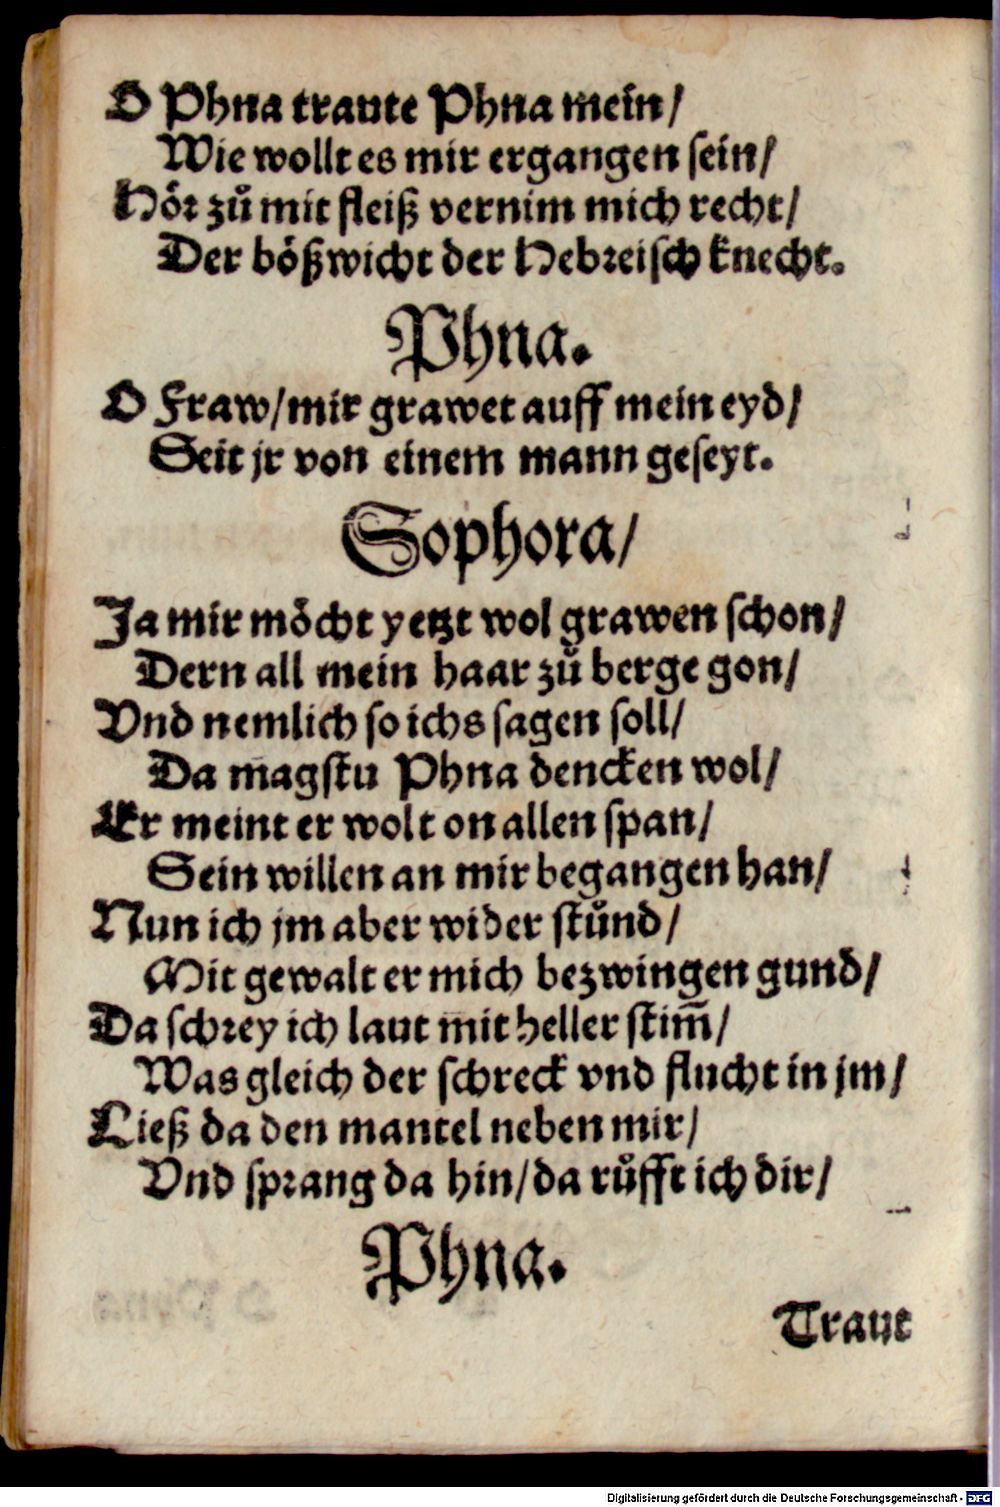 O Phna traute Phna mein/
Wie wollt es mir ergangen sein/
Hoͤr zuͦ mit fleiß vernim mich recht/
Der boͤßwicht der Hebreisch knecht.
Phna.
O Fraw/mir grawet auff mein eyd/
Seit jr von einem mann geseyt.
Sophora/
Ja mir moͤcht yetzt wol grawen schon/
Dern all mein haar zuͦ berge gon/
Vnd nemlich so ichs sagen soll/
Da magstu Phna dencken wol/
Er meint er wolt on allen span/
Sein willen an mir begangen han/
Nun ich jm aber wider stuͦnd/
Mit gewalt er mich bezwingen gund/
Da schrey ich laut mit heller stim̄/
Was gleich der schreck vnd flucht in jm/
Ließ da den mantel neben mir/
Vnd sprang da hin/da ruͦfft ich dir/
Phna.
Traut
Digitalisierung gefördert durch die Deutsche Forschungsgemeinschaft - DFG